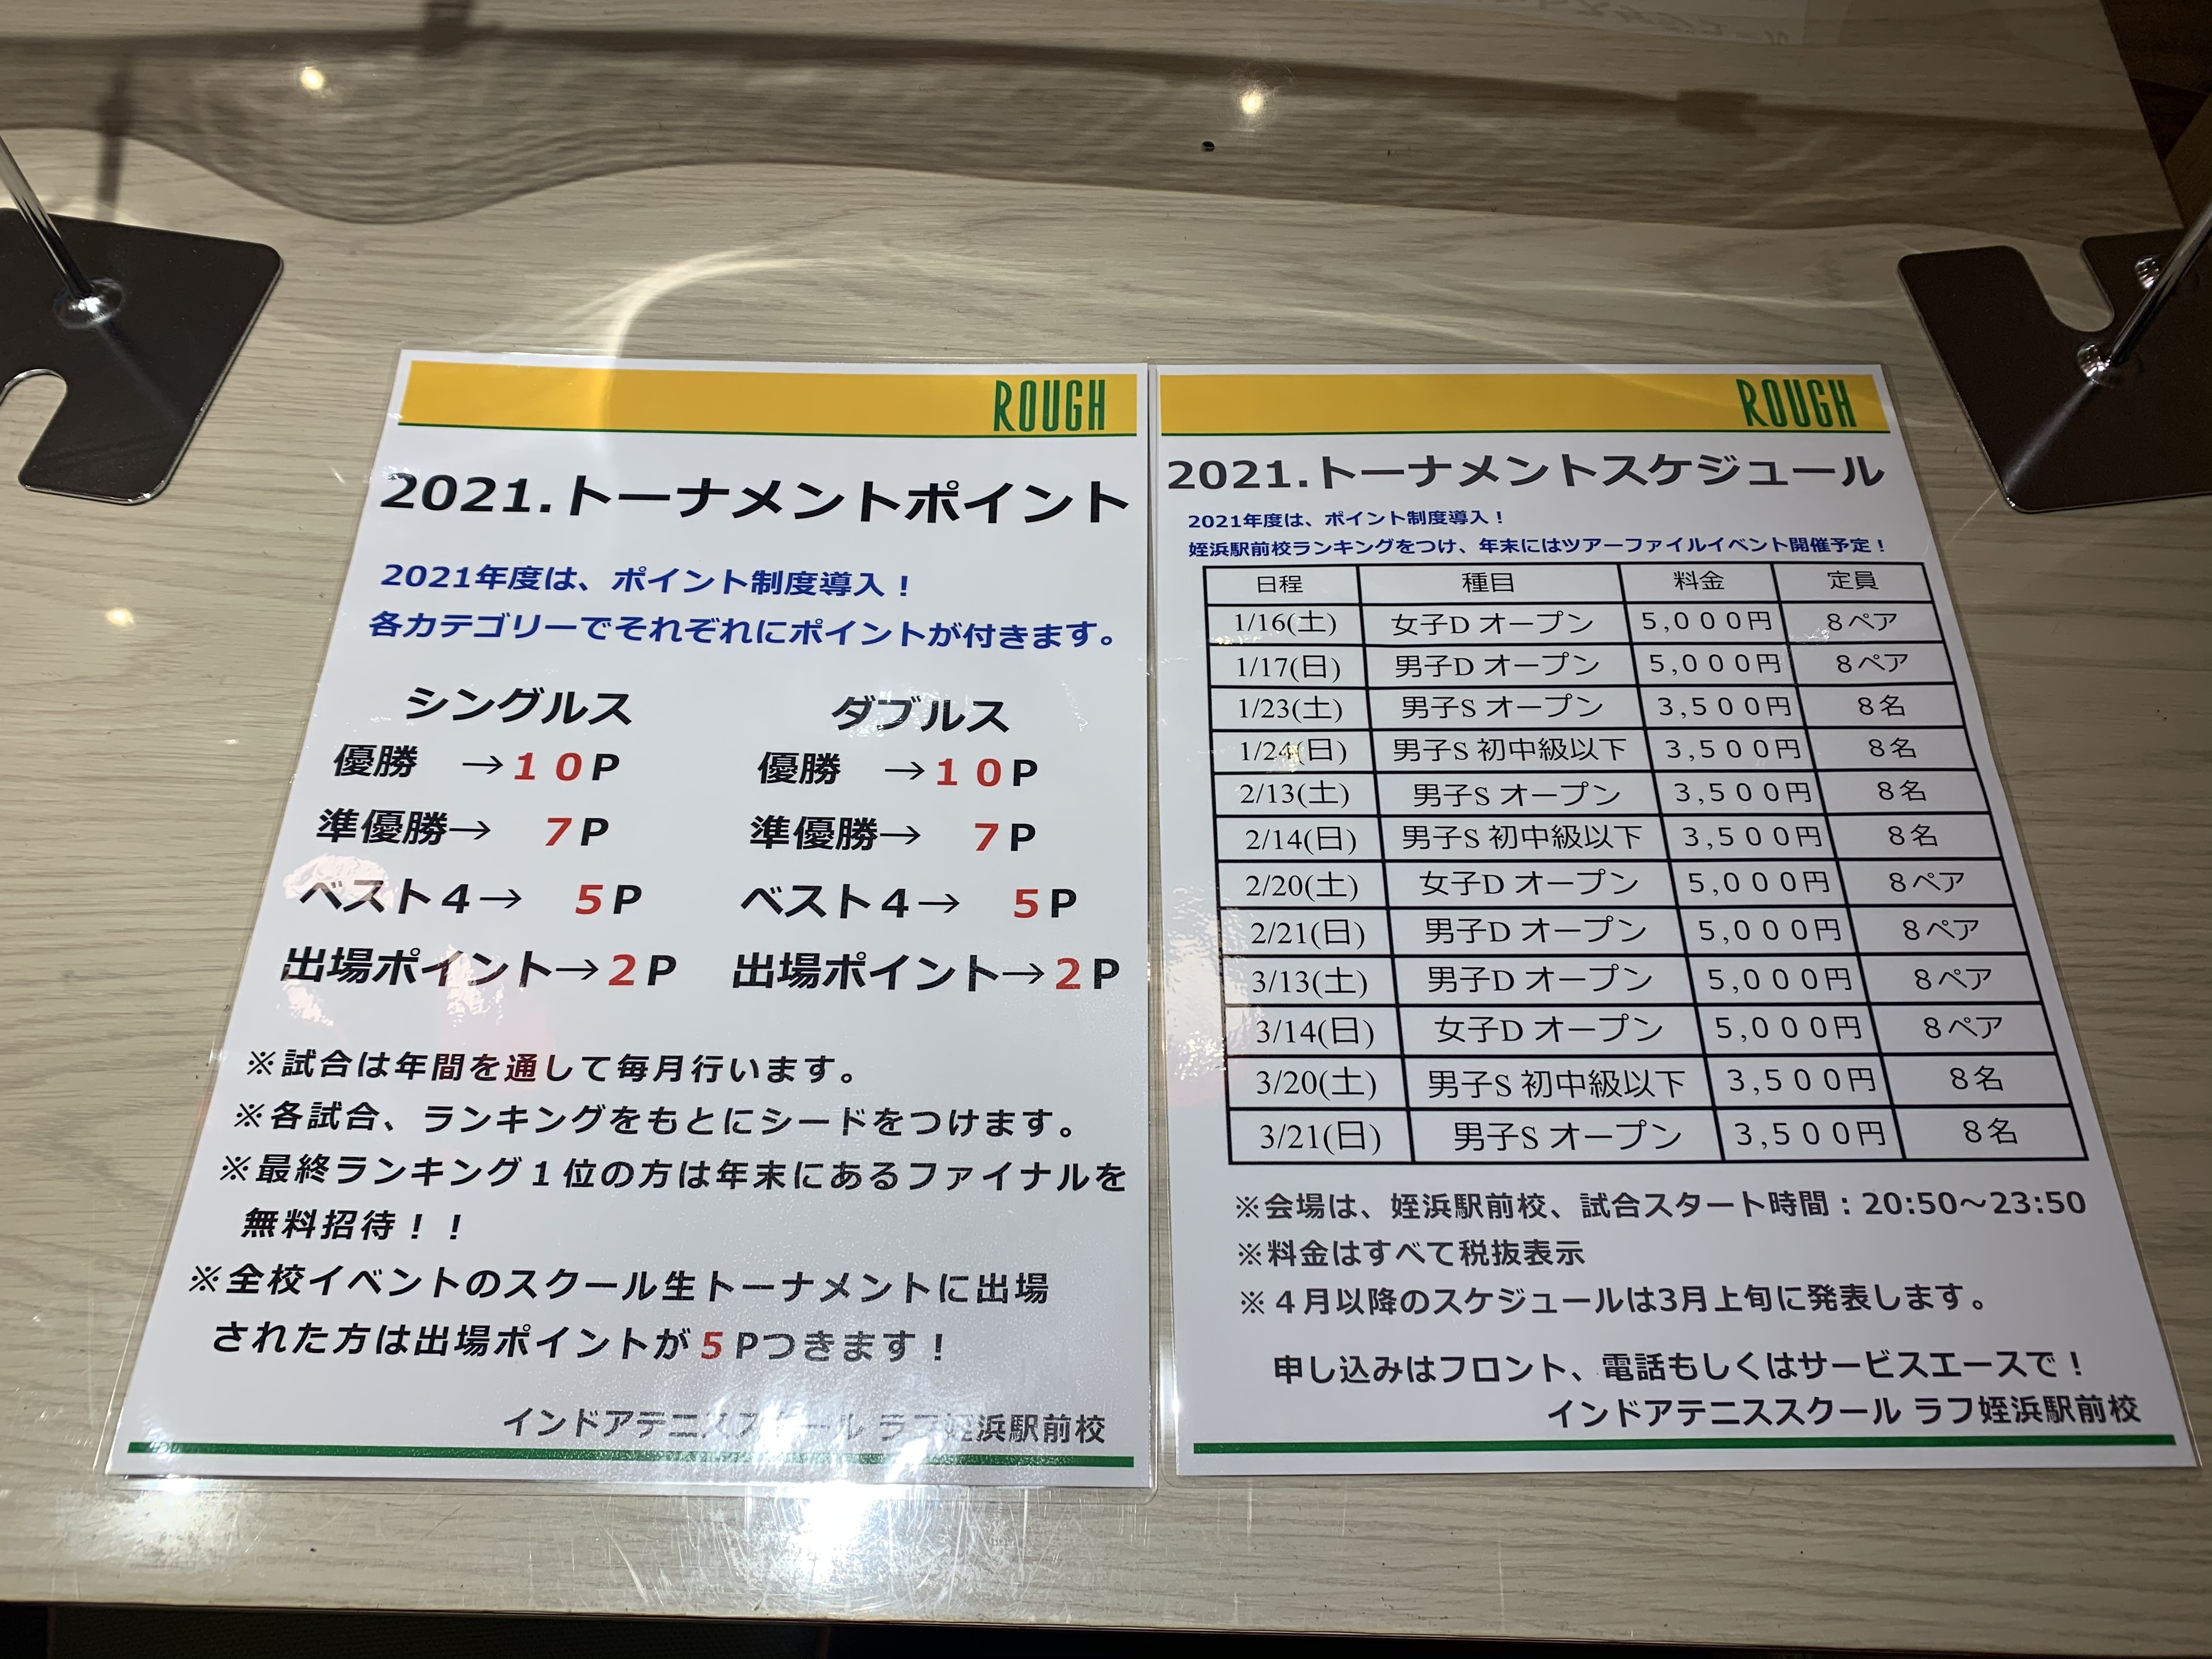 ROUGH
2021.トーナメントポイント
2021年度は、ポイント制度導入！
各カテゴリーでそれぞれにポイントが付きます。
シングルス ダブルス
優勝 →１０P 優勝 →１０P
準優勝→ ７P 準優勝→ ７P
ベスト４→ ５P ベスト４→ ５P
出場ポイント→２P 出場ポイント→２P
※試合は年間を通して毎月行います。
※各試合、ランキングをもとにシードをつけます。
※最終ランキング１位の方は年末にあるファイナルを
無料招待！！
※全校イベントのスクール生トーナメントに出場
された方は出場ポイントが５Pつきます！
インドアテニススクール ラフ姪浜駅前校
ROUGH
2021.トーナメントスケジュール
2021年度は、ポイント制度導入！
姪浜駅前校ランキングをつけ、年末にはツアーファイルイベント開催予定！
日程 種目 料金 定員
1/16(土) 女子D オープン ５,０００円 ８ペア
1/17(日) 男子D オープン ５,０００円 ８ペア
1/23(土) 男子S オープン ３,５００円 ８名
1/24(日) 男子S 初中級以下 ３,５００円 ８名
2/13(土) 男子S オープン ３,５００円 ８名
2/14(日) 男子S 初中級以下 ３,５００円 ８名
2/20(土) 女子D オープン ５,０００円 ８ペア
2/21(日) 男子D オープン ５,０００円 ８ペア
3/13(土) 男子D オープン ５,０００円 ８ペア
3/14(日) 女子D オープン ５,０００円 ８ペア
3/20(土) 男子S 初中級以下 ３,５００円 ８名
3/21(日) 男子S オープン ３,５００円 ８名
※会場は、姪浜駅前校、試合スタート時間：20:50～23:50
※料金はすべて税抜表示
※４月以降のスケジュールは3月上旬に発表します。
申し込みはフロント、電話もしくはサービスエースで！
インドアテニススクール ラフ姪浜駅前校